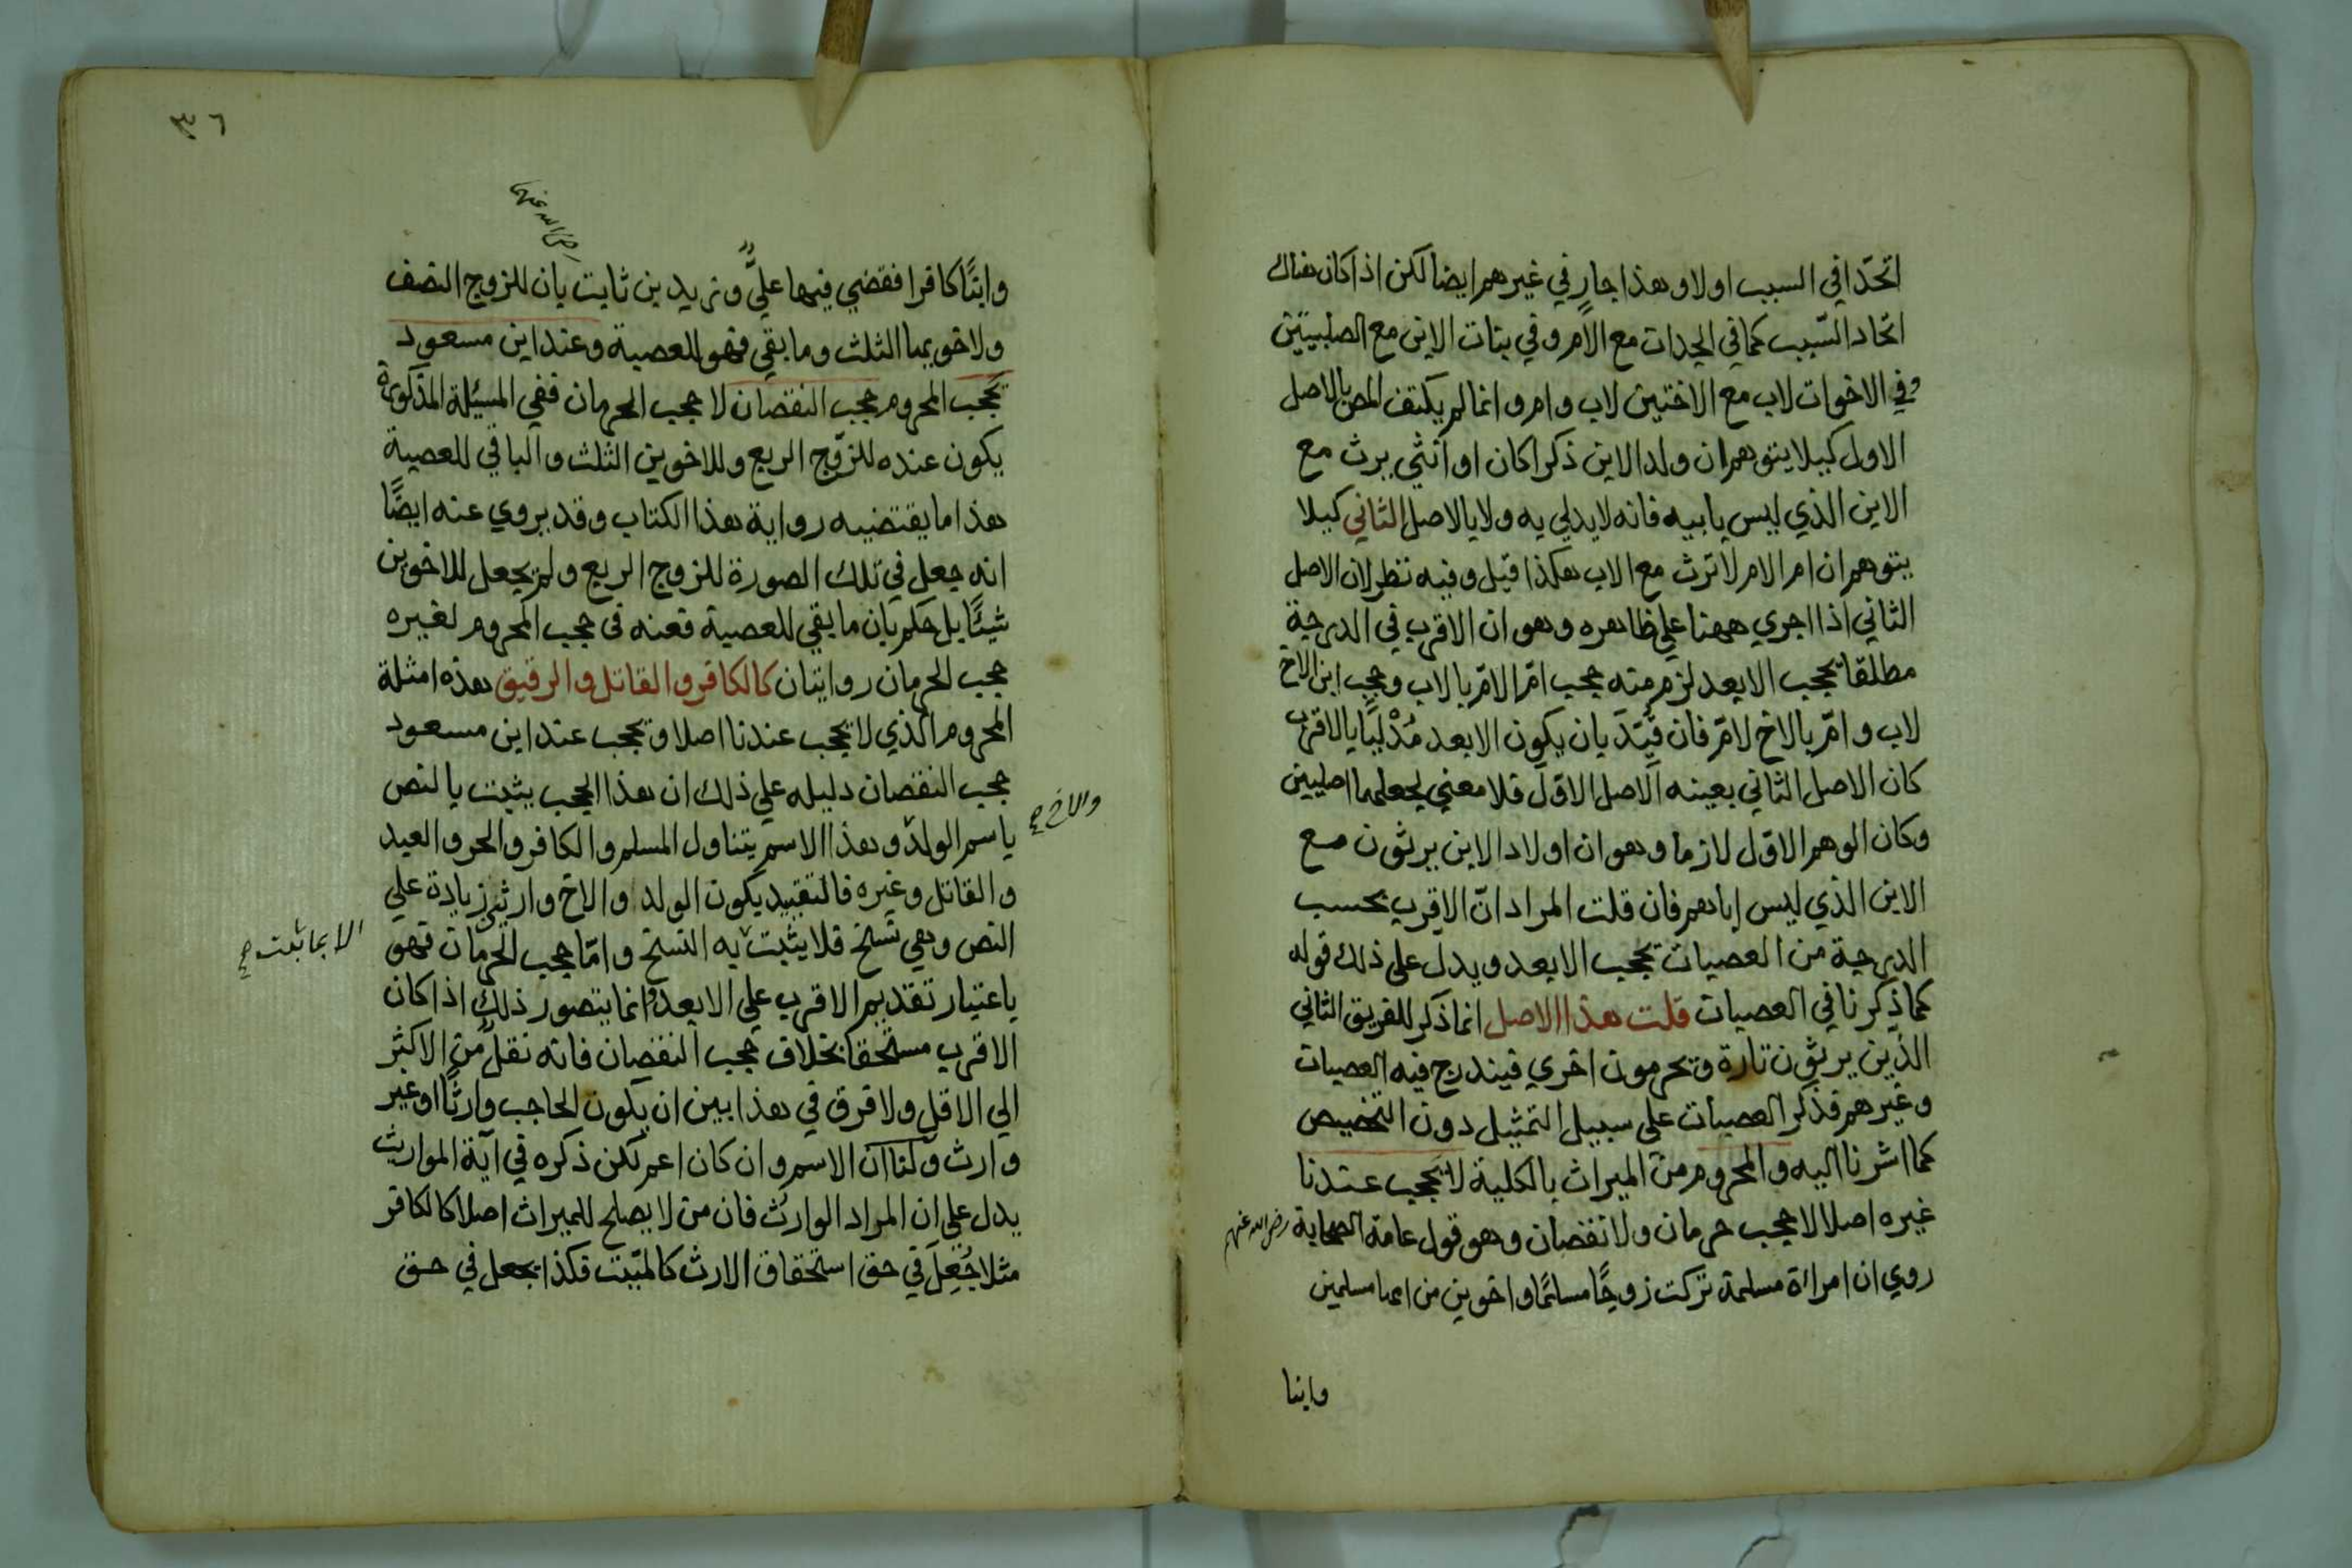 اتحدا في السبب اولا وهذا جار في غيرهم ايضا لكن اذا كان هناك
اتحاد السّبب كما في الجدات مع الام وفي بنات الابن مع الصلبيتين
وفي الاخوات لاب مع الاختين لاب وام وانما لم يكتف المص بالاصل
الاول كيلا يتوهم ان ولد الابن ذكرا كان او انثي يرث مع
الابن الذي ليس بابيه فانه لا يدلي به ولا بالاصل الثاني كيلا
يتوهم ان ام الام لا ترث مع الاب هكذا قيل وفيه نظر لان الاصل
الثاني اذا اجري ههنا علي ظاهره وهو ان الاقرب في الدرجة
مطلقا يحجب الابعد لزم منه حجب امّ الامّ بالاب وحجب ابن الاخ
لاب وامّ بالاخ لامّ فان قيّد بان يكون الابعد مُدْليًا بالاقرب
كان الاصل الثاني بعينه الاصل الاوّل فلا معني لجعلهما اصليين
وكان الوهم الاوّل لازما وهو ان اولاد الابن يرثون مع
الابن الذي ليس اباهم فان قلت المراد انّ الاقرب بحسب
الدرجة من العصبات يحجب الابعد ويدل علي ذلك قوله
كما ذكرنا في العصبات قلت هذا الاصل انما ذكر للفريق الثاني
الذين يرثون تارة ويحرمون اخري فيندرج فيه العصبات
وغيرهم فذكر العصبات علي سبيل التمثيل دون التخصيص
كما اشرنا اليه والمحروم من الميراث بالكلية لا يحجب عندنا
غيره اصلا لا حجب حرمان ولا نقصان وهو قول عامة الصحابة رضي الله عنهم
روي ان امراة مسلمة تركت زوجًا مسلمًا واخوين من امها مسلمين
وابنا
٣٦
رضي الله عنهما
وابنًا كافرا فقضي فيها عليٌّ وزيد بن ثابت بان للزوج النصف
ولاخويها الثلث وما بقي فهو للعصبة وعند ابن مسعود
يحجب المحروم حجب النقصان لا حجب الحرمان ففي المسئلة المذكورة
يكون عنده للزّوج الربع وللاخوين الثلث والباقي للعصبة
هذا ما يقتضيه رواية هذا الكتاب وقد يروي عنه ايضًا
انه جعل في تلك الصورة للزوج الربع ولم يجعل للاخوين
شيئًا بل حكم بان ما بقي للعصبة فعنه في حجب المحروم لغيره
حجب الحرمان روايتان كالكافر والقاتل والرقيق هذه امثلة
المحروم الذي لا يحجب عندنا اصلا ويحجب عند ابن مسعود
حجب النقصان دليله علي ذلك ان هذا الحجب يثبت بالنص
باسم الولد وهذا الاسم يتناول المسلم والكافر والحر والعبد
والاخ صح
والقاتل وغيره فالتقييد بكون الولد والاخ وارثين زيادة علي
النص وهي نسخ فلا يثبت به النسخ وامّا حجب الحرمان فهو
الا بما يثبت صح
باعتبار تقديم الاقرب علي الابعد وانما يتصور ذلك اذا كان
الاقرب مستحقا بخلاف حجب النقصان فانه نقل من الاكثر
الي الاقل ولا فرق في هذا بين ان يكون الحاجب وارثًا او غير
وارث ولنا ان الاسم وان كان اعم لكن ذكره في آية المواريث
يدل علي ان المراد الوارث فان من لا يصلح للميراث اصلا كالكافر
مثلا جُعِلَ في حق استحقاق الارث كالميّت فكذا يجعل في حق